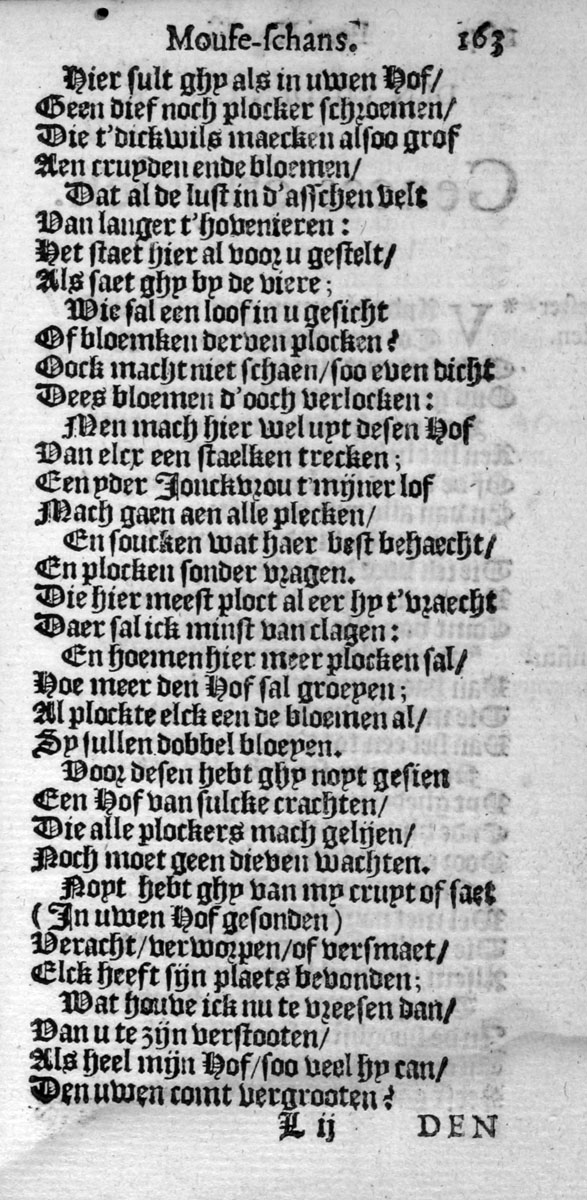 Moufe-schans. 163
Hier sult ghy als in uwen Hof/
Geen dief noch plocker schroemen/
Die t'dickwils maecken alsoo grof
Aen cruyden ende bloemen/
Dat al de lust in d'asschen velt
Van langer t'hovenieren:
Het staet hier al voor u gestelt/
Als saet ghy by de viere;
Wie sal een loof in u gesicht
Of bloemken derven plocken?
Oock macht niet schaen/soo even dicht
Dees bloemen d'ooch verlocken:
Men mach hier wel uyt desen Hof
Van elcx een staelken trecken;
Een yder Jonckvrou t'mijner lof
Mach gaen aen alle plecken/
En soucken wat haer best behaecht/
En plocken sonder vragen.
Die hier meest ploct al eer hy t'vraecht
Daer sal ick minst van clagen:
En hoemen hier meer plocken sal/
Hoe meer den Hof sal groeyen;
Al plockte elck een de bloemen al/
Sy sullen dobbel bloeyen.
Voor desen hebt ghy noyt gesien
Een Hof van sulcke crachten/
Die alle plockers mach gelijen/
Noch moet geen dieven wachten.
Noyt hebt ghy van my cruyt of saet
(In uwen Hof gesonden)
Veracht/verworpen/of versmaet/
Elck heeft sijn plaets bevonden;
Wat houve ick nu te vreesen dan/
Van u te zijn verstooten/
Als heel mijn Hof/soo veel hy can/
Den uwen comt vergrooten?
L ij DEN